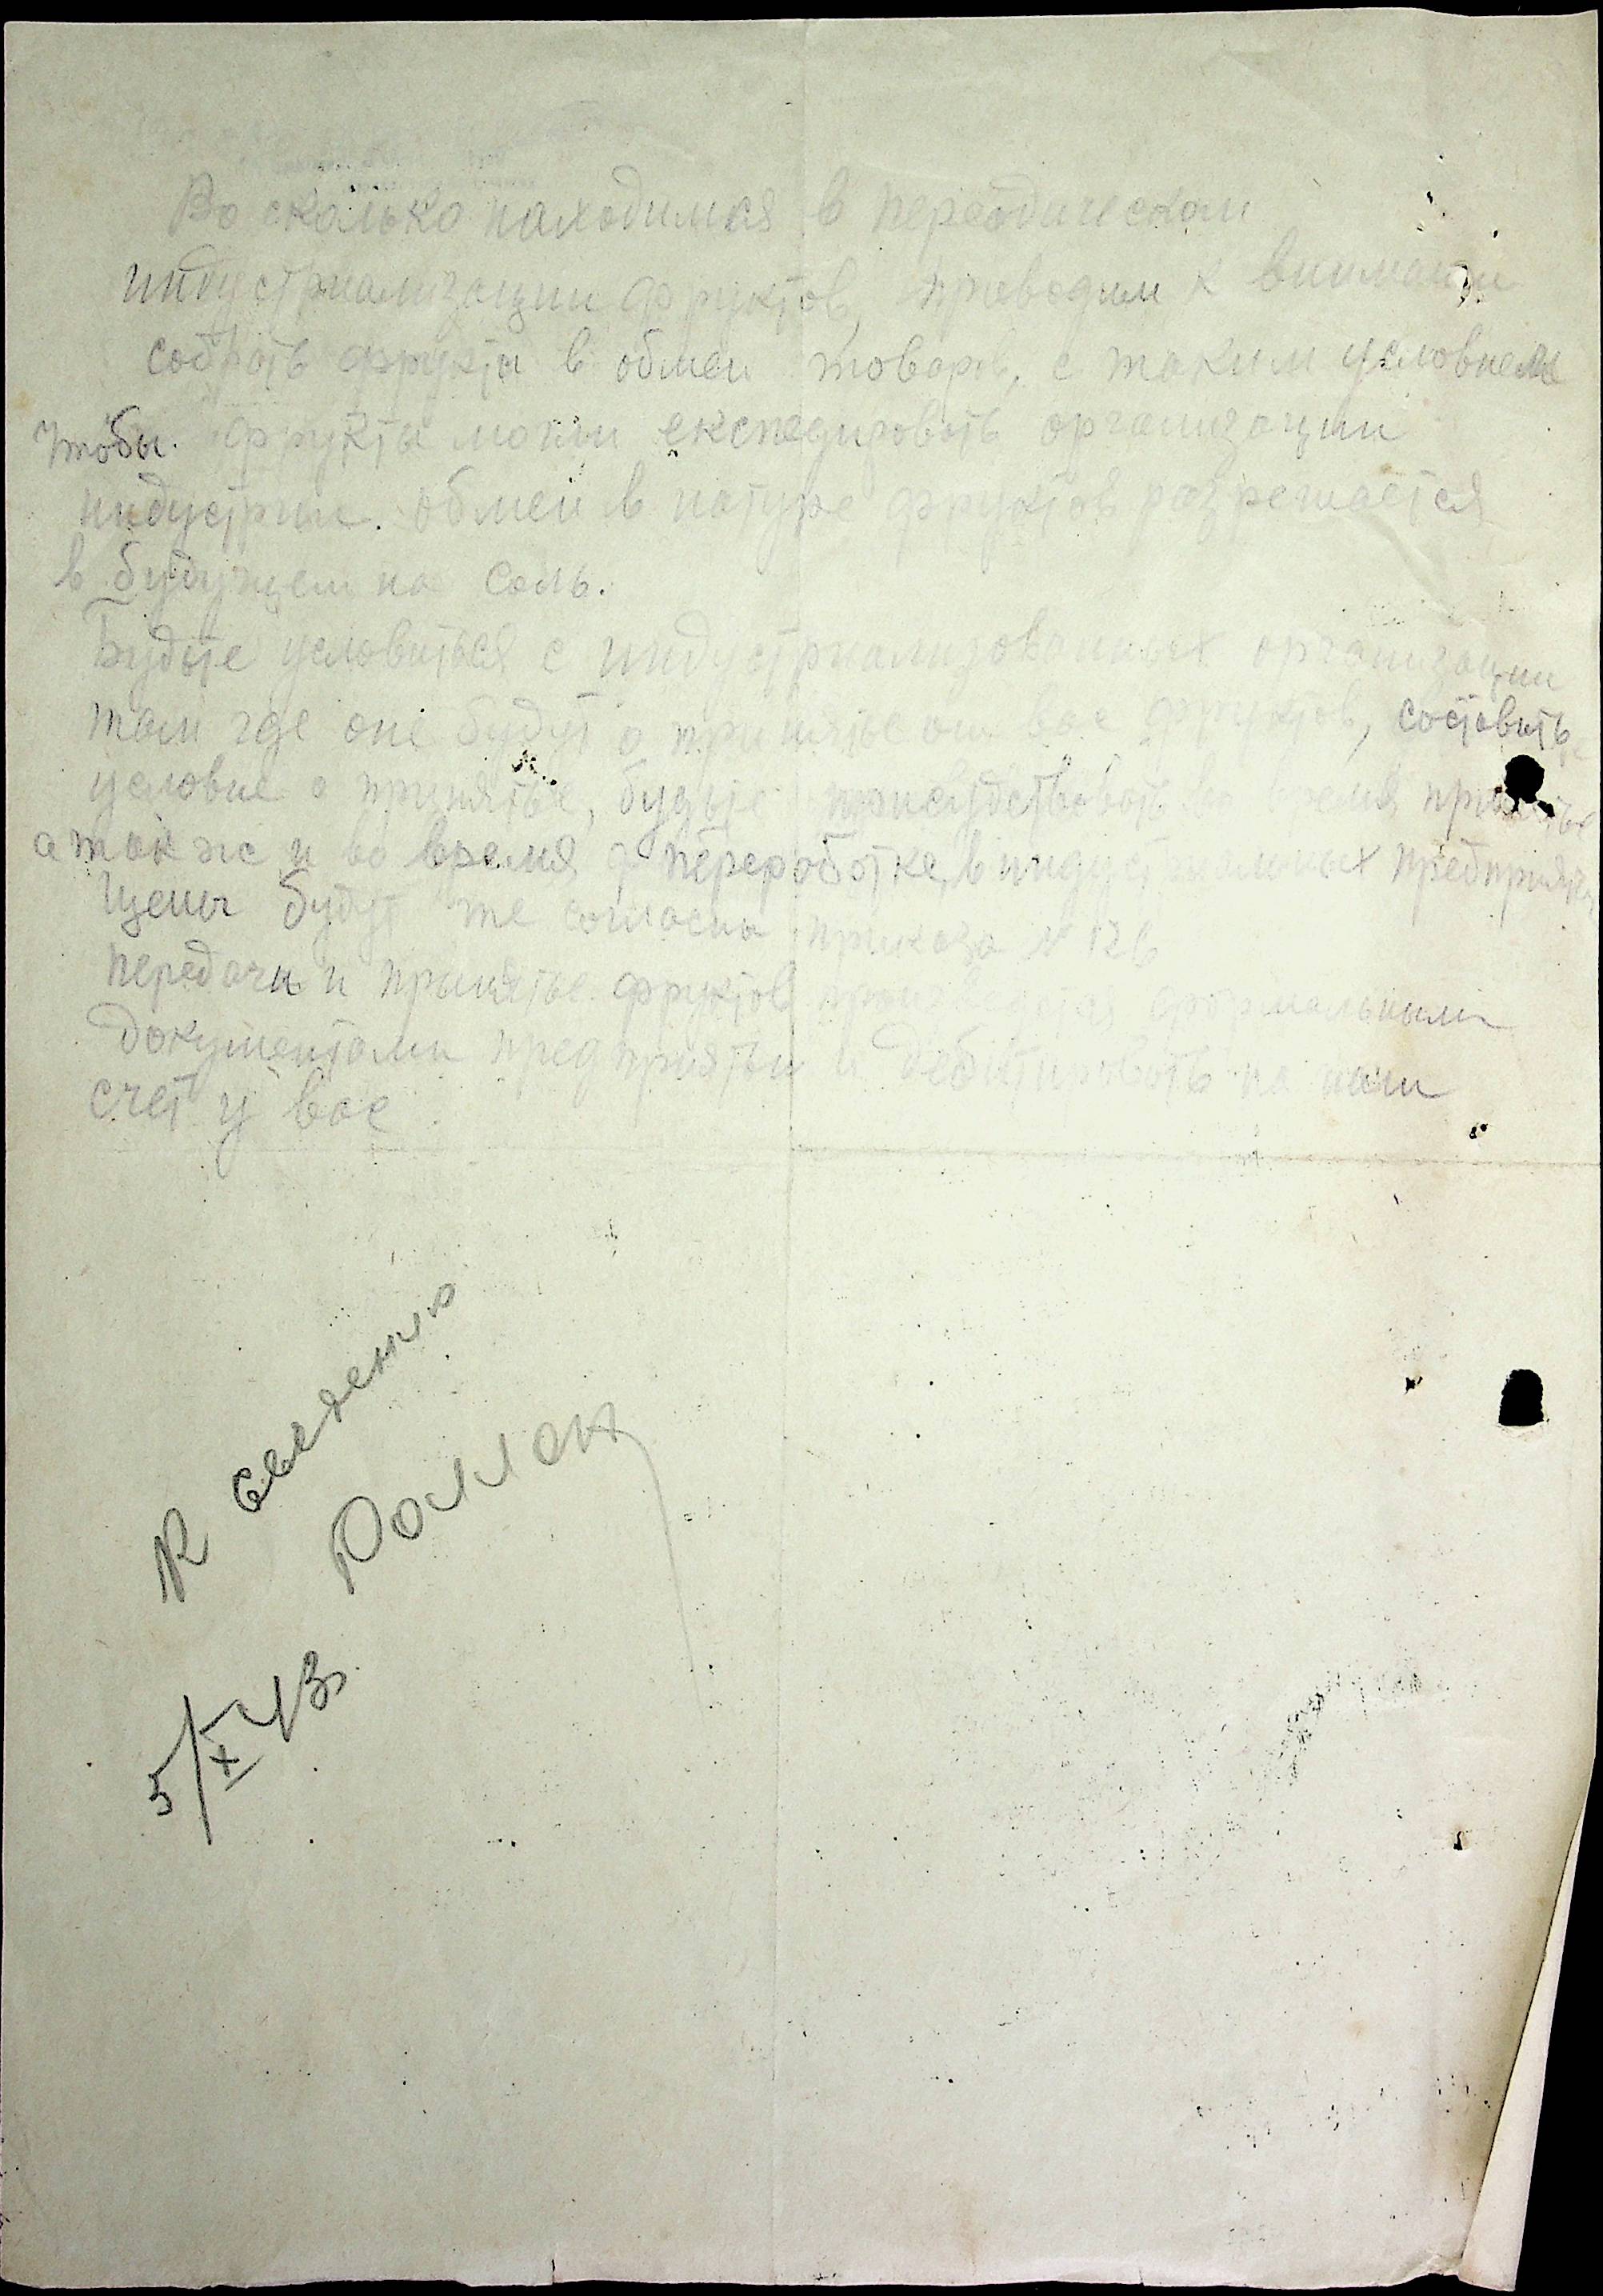 Во сколько находимся в переодическом
индустриализации фруктов, приводим к внимании
собрать фрукты в обмен товаров, с таким условием
чтобы фрукты могли експедировать организации
индустрии. Обмен в натуре фруктов разрешается
в будущем на соль.
Будьте условиться с индустриализованных организации
там где оне будут о принятые от вас фруктов, составить
условие о принятье, будьте присудствовать во время принятье
а также и во время переработке, в индустриальных предприятия
Цены будут те согласно приказа № 126
передачи и принятье фруктов формальными
документами предприятьи и дебитировать на наш
счет у вас.
К сведению
5/X 43